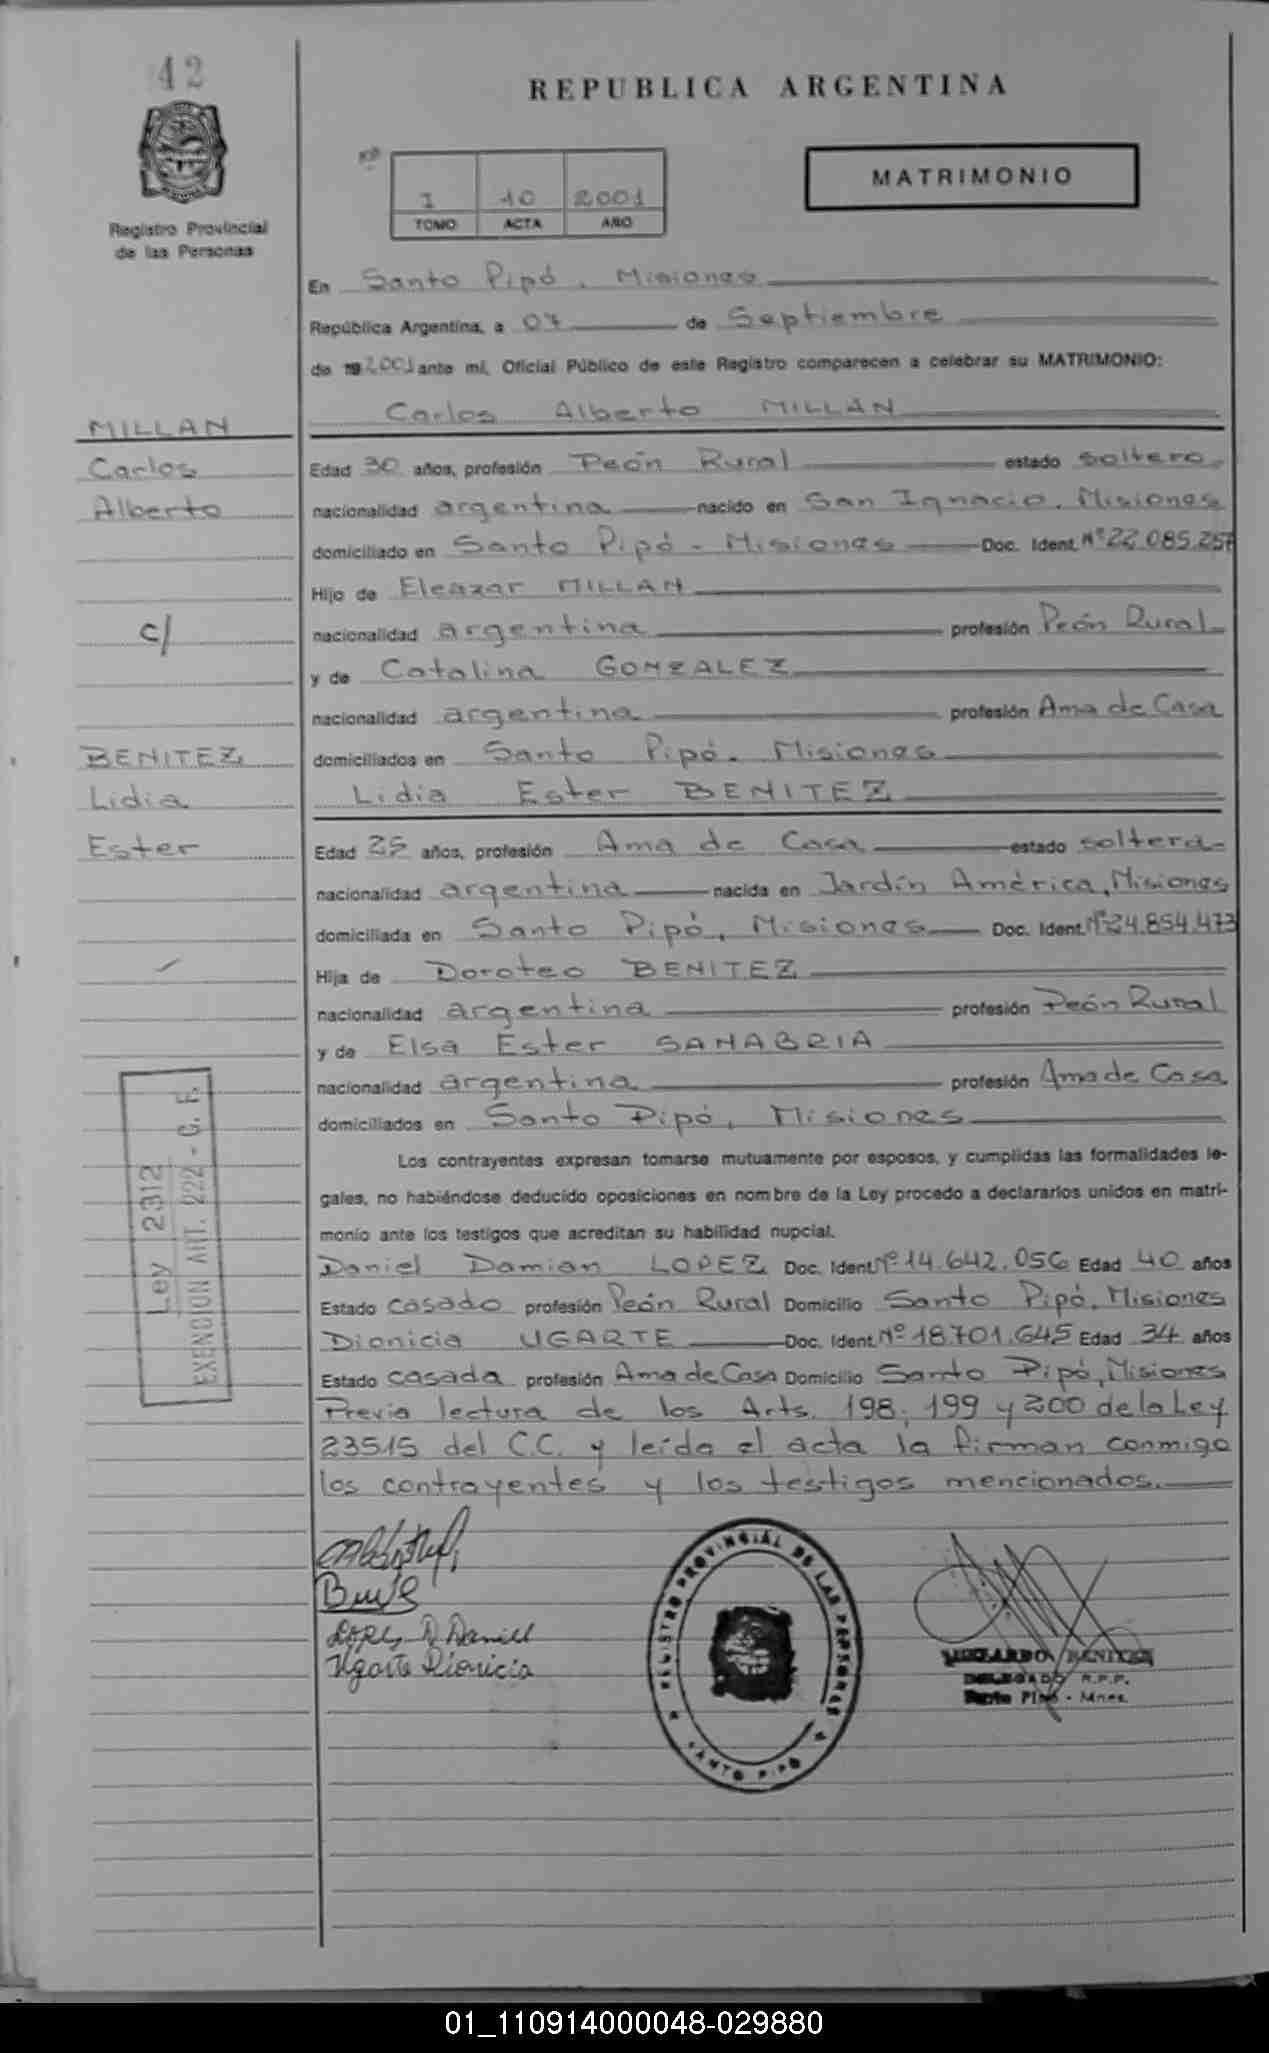 42
REPUBLICA ARGENTINA
Nº
I 10 2001
TOMO ACTA AÑO
MATRIMONIO
Registro Provincial
de las Personas
En Santo Pipó, Misiones
República Argentina, a 07 de Septiembre
de 19 2001 ante mí, Oficial Público de este Registro comparecen a celebrar su MATRIMONIO:
Carlos Alberto MILLAN
MILLAN
Carlos
Alberto
c/
BENITEZ
Lidia
Ester
Edad 30 años, profesión Peón Rural estado soltero
nacionalidad argentina nacido en San Ignacio, Misiones
domiciliado en Santo Pipó - Misiones Doc. Ident. Nº 22.085.257
Hijo de Eleazar MILLAN
nacionalidad argentina profesión Peón Rural
y de Catalina GONZALEZ
nacionalidad argentina profesión Ama de Casa
domiciliados en Santo Pipó. Misiones
Lidia Ester BENITEZ
Edad 25 años, profesión Ama de Casa estado soltera
nacionalidad argentina nacida en Jardín América, Misiones
domiciliada en Santo Pipó, Misiones Doc. Ident. Nº 24.854.473
Hija de Doroteo BENITEZ
nacionalidad argentina profesión Peón Rural
y de Elsa Ester SANABRIA
nacionalidad argentina profesión Ama de Casa
domiciliados en Santo Pipó, Misiones
Los contrayentes expresan tomarse mutuamente por esposos, y cumplidas las formalidades le-
gales, no habiéndose deducido oposiciones en nombre de la Ley procedo a declararlos unidos en matri-
monio ante los testigos que acreditan su habilidad nupcial.
Daniel Damian LOPEZ Doc. Ident. Nº 14.642.056 Edad 40 años
Estado casado profesión Peón Rural Domicilio Santo Pipó, Misiones
Dionicia UGARTE Doc. Ident. Nº 18.701.645 Edad 34 años
Estado casada profesión Ama de Casa Domicilio Santo Pipó, Misiones
Previa lectura de los Arts. 198, 199 y 200 de la Ley
23515 del C.C. y leída el acta la firman conmigo
los contrayentes y los testigos mencionados.
Ley 2312
EXENCION ART. 222 - C. F.
Lopez D Daniel
Ugarte Dionicia
REGISTRO PROVINCIAL DE LAS PERSONAS
SANTO PIPÓ
BENITEZ
DELEGADO R.P.P.
Santo Pipó - Mnes.
01_110914000048-029880